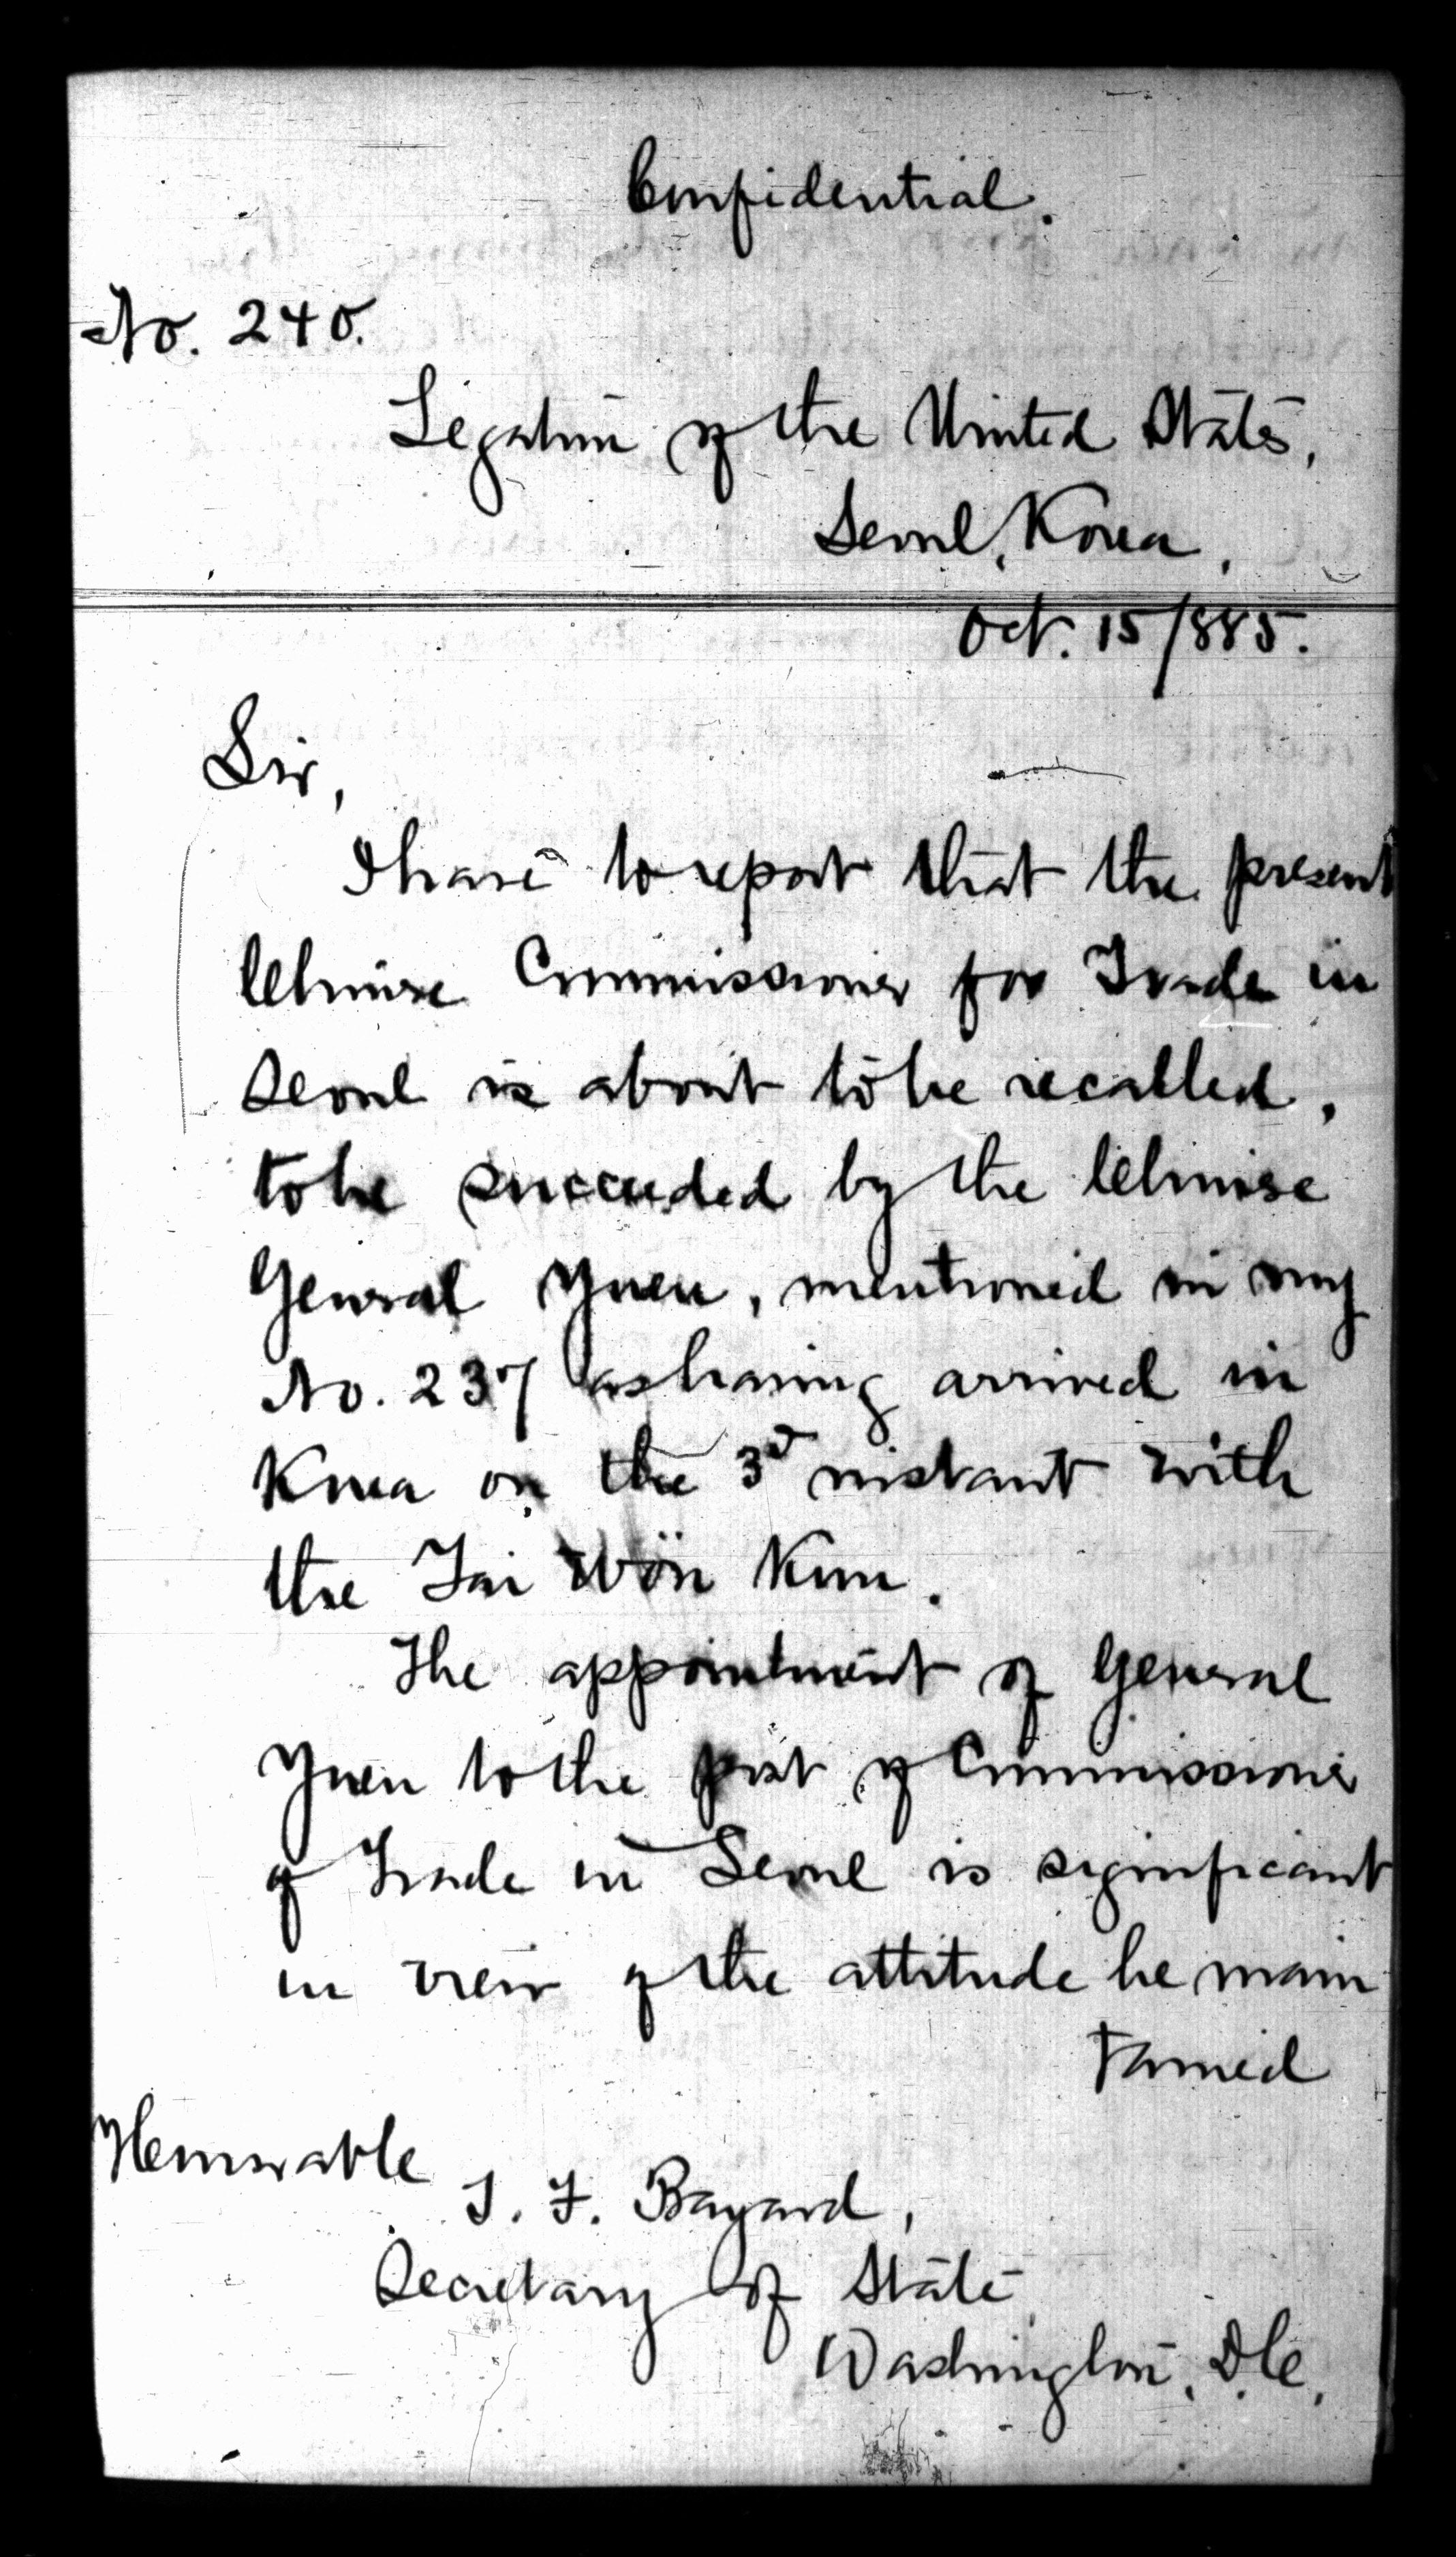 Confidential.
No. 240.
Legation of the United States,
Seoul, Korea,
Oct. 15/885.
Sir,
I have to report that the present
Chinese Commissioner for Trade in
Seoul is about to be recalled,
to be succeeded by the Chinese
General Yuen, mentioned in my
No. 237 as having arrived in
Korea on the 3d instant with
the Tai Wön Kun.
The appointment of General
Yuen to the post of Commissioner
of Trade in Seoul is significant
in view of the attitude he main
tained
Honorable
T. F. Bayard,
Secretary of State
Washington, D.C.